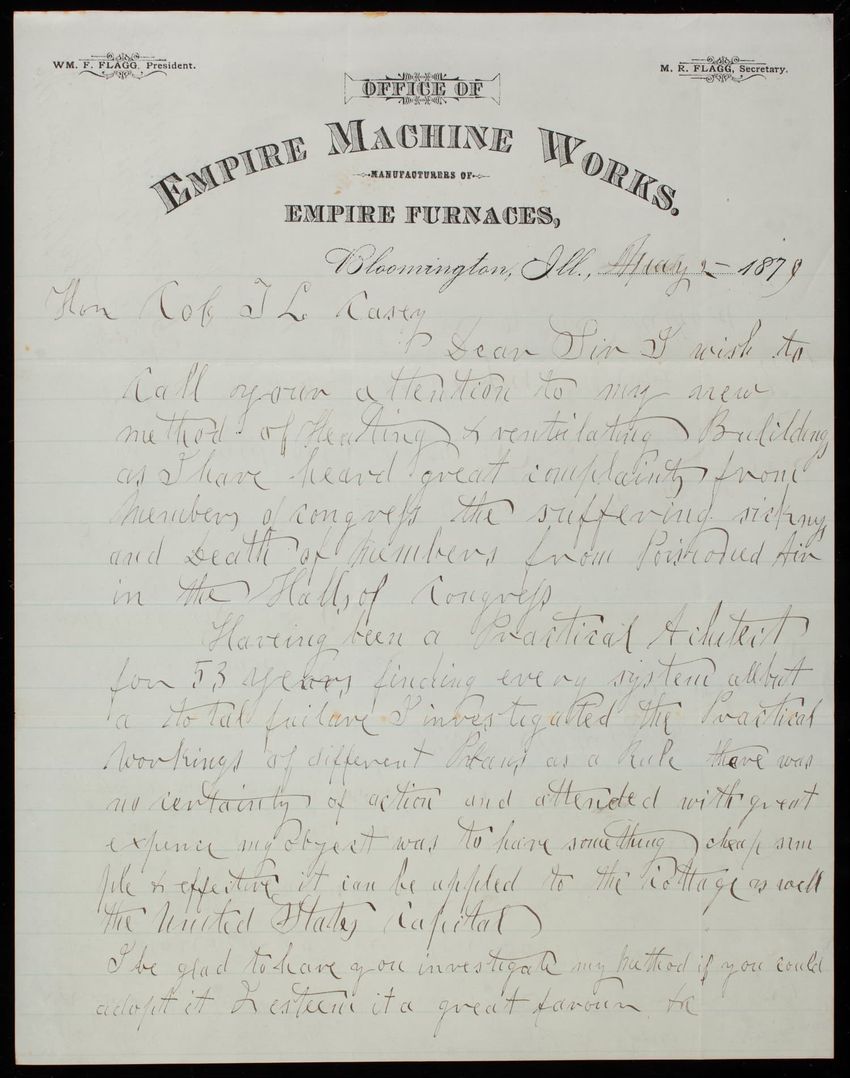 WM. F. FLAGG. President.
M. R. FLAGG, Secretary.
OFFICE OF
EMPIRE MACHINE WORKS.
MANUFACTURERS OF
EMPIRE FURNACES,
Bloomington, Ill., May 2 - 1879
Hon Col T L Casey
Dear Sir I wish to
Call your attention to my new
method of Heating & venteilating Building
as I have heard great complaints from
Members of congress the suffering sickness
and Death of Members from Poisoned Air
in the Halls of Congress
Haveing been a Practical Achitect
for 53 years finding every system all but
a total failure I investigated the Practical
workings of different Plans as a Rule there was
no certainty of action and attended with great
expence my object was to have something cheap sim
ple & effective it can be applied to the Cottage as well
the United States Capital
I be glad to have you investigate my Method if you could
adopt it I esteem it a great favour &c